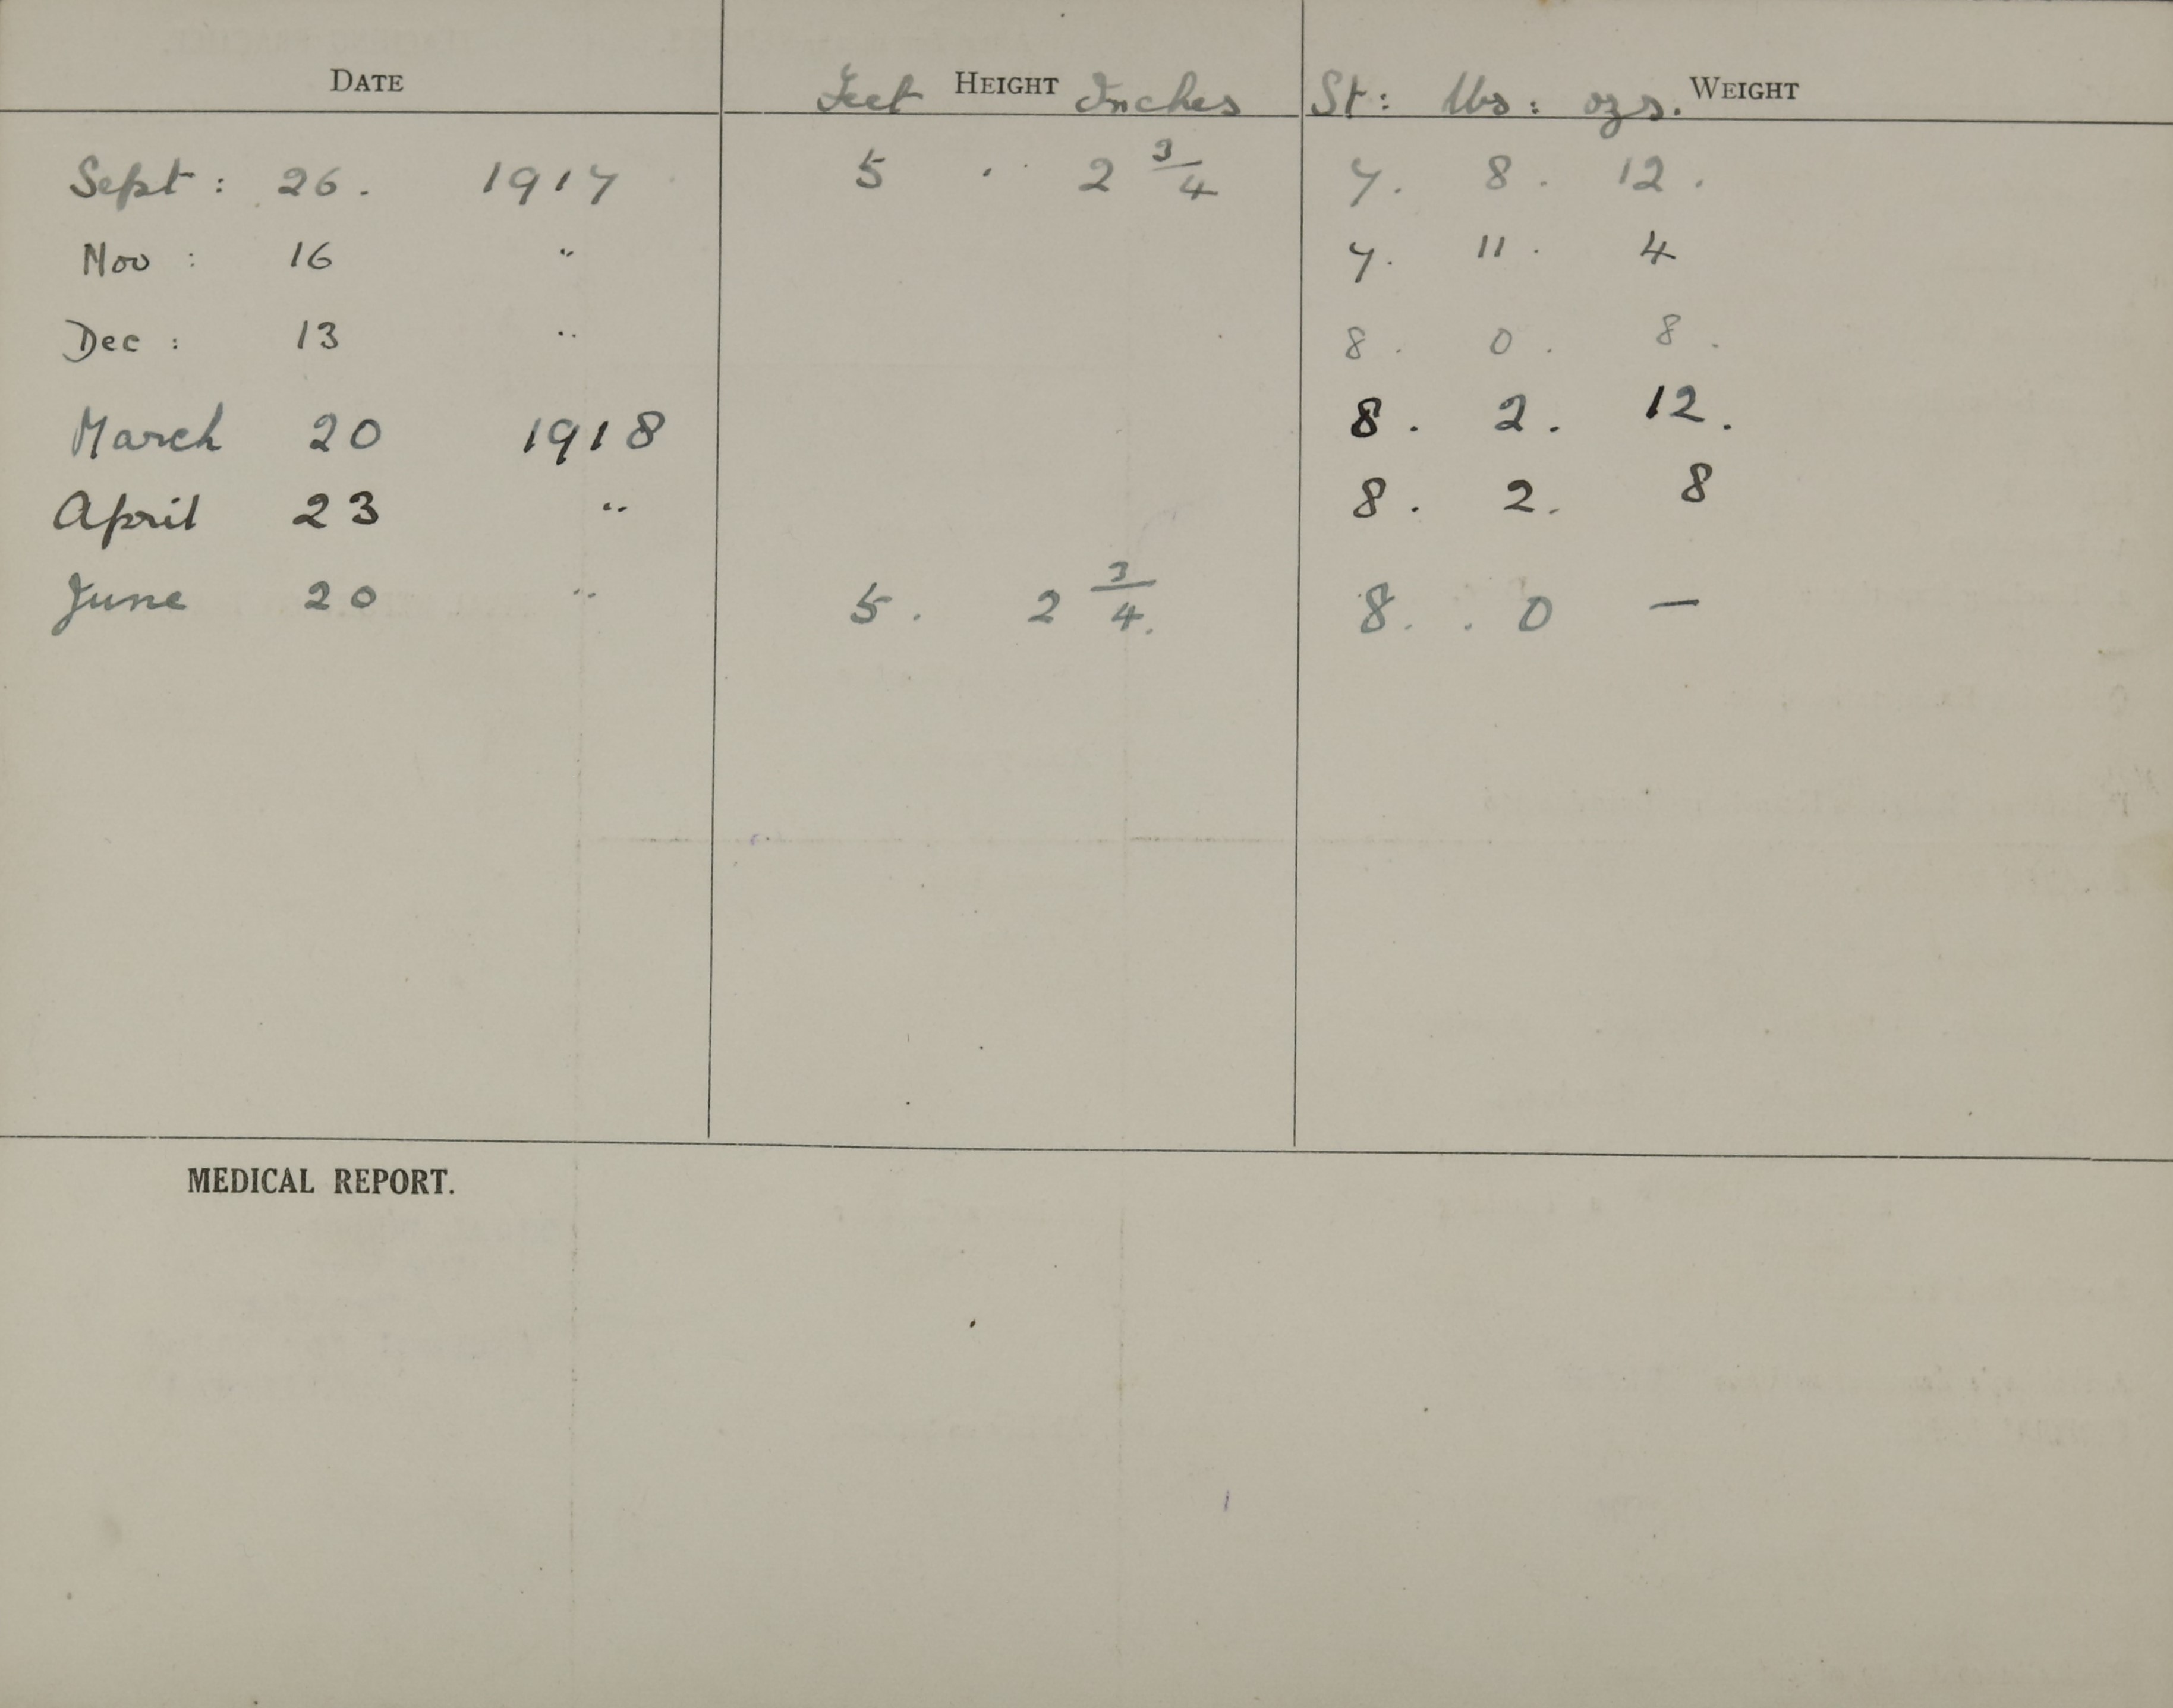 DATE Feet HEIGHT Inches St: lbs: ozs. WEIGHT
Sept: 26. 1917 5 . 2 3/4 7. 8. 12.
Nov: 16 " 7. 11. 4
Dec: 13 " 8. 0. 8.
March 20 1918 8. 2. 12.
April 23 " 8. 2. 8
June 20 " 5. 2 3/4. 8. . 0 —
MEDICAL REPORT.